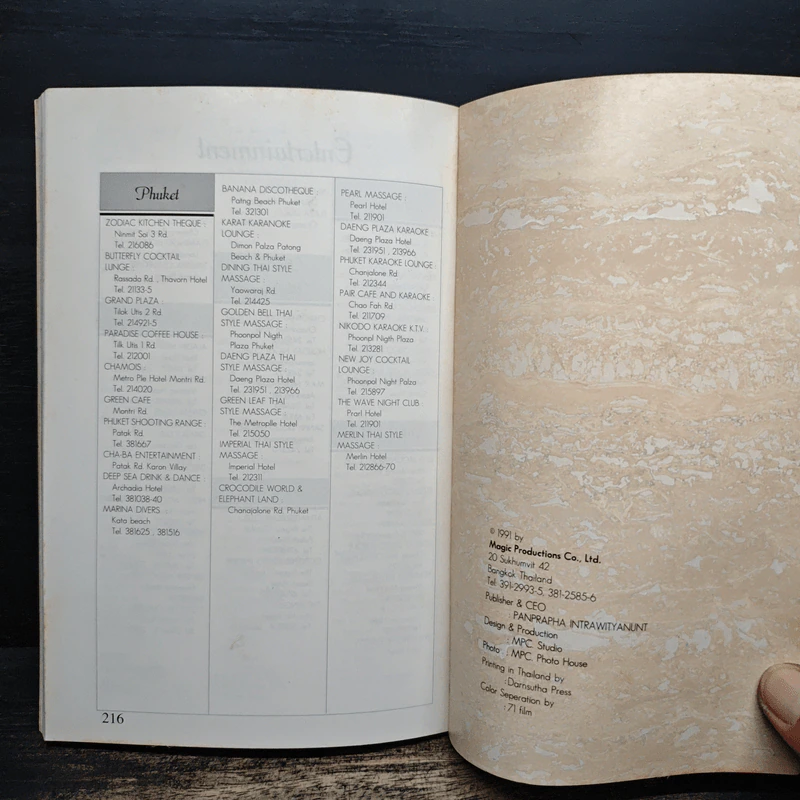 Entertainment
Phuket
ZODIAC KITCHEN THEQUE :
Ninmit Soi 3 Rd.
Tel. 216086
BUTTERFLY COCKTAIL
LUNGE :
Rassada Rd. , Thavarn Hotel
Tel. 21133-5
GRAND PLAZA :
Tilok Utis 2 Rd.
Tel. 214921-5
PARADISE COFFEE HOUSE :
Tilk Utis 1 Rd.
Tel. 212001
CHAMOIS :
Metro Ple Hotel Montri Rd.
Tel. 214020
GREEN CAFE
Montri Rd.
PHUKET SHOOTING RANGE :
Patak Rd.
Tel. 381667
CHA-BA ENTERTAINMENT :
Patak Rd. Karan Villay
DEEP SEA DRINK & DANCE :
Archadia Hotel
Tel. 381038-40
MARINA DIVERS
Kata beach
Tel. 381625 , 381516
BANANA DISCOTHEQUE :
Patng Beach Phuket
Tel. 321301
KARAT KARANOKE
LOUNGE :
Dimon Palza Patong
Beach & Phuket
DINING THAI STYLE
MASSAGE :
Yaowaraj Rd.
Tel. 214425
GOLDEN BELL THAI
STYLE MASSAGE :
Phoonpol Nigth
Plaza Phuket
DAENG PLAZA THAI
STYLE MASSAGE :
Daeng Plaza Hotel
Tel. 231951 , 213966
GREEN LEAF THAI
STYLE MASSAGE :
The Metroplle Hotel
Tel. 215050
IMPERIAL THAI STYLE
MASSAGE :
Imperial Hotel
Tel. 212311
CROCODILE WORLD &
ELEPHANT LAND :
Chanajalone Rd. Phuket
PEARL MASSAGE :
Pearl Hotel
Tel. 211901
DAENG PLAZA KARAOKE :
Daeng Plaza Hotel
Tel. 231951 , 213966
PHUKET KARAOKE LOUNGE :
Chanjalone Rd.
Tel. 212344
PAIR CAFE AND KARAOKE
Chao Fah Rd.
Tel. 211709
NIKODO KARAOKE K.T.V. :
Phoonpl Nigth Plaza
Tel. 213281
NEW JOY COCKTAIL
LOUNGE :
Phoonpol Night Palza
Tel. 215897
THE WAVE NIGHT CLUB :
Prarl Hotel
Tel. 211901
MERLIN THAI STYLE
MASSAGE :
Merlin Hotel
Tel. 212866-70
216
© 1991 by
Magic Productions Co., Ltd.
20 Sukhumvit 42
Bangkok Thailand
Tel: 391-2993-5, 381-2585-6
Publisher & CEO
: PANPRAPHA INTRAWITYANUNT
Design & Production
: MPC. Studio
Photo : MPC. Photo House
Printing in Thailand by
: Darnsutha Press
Color Seperation by
: 71 film